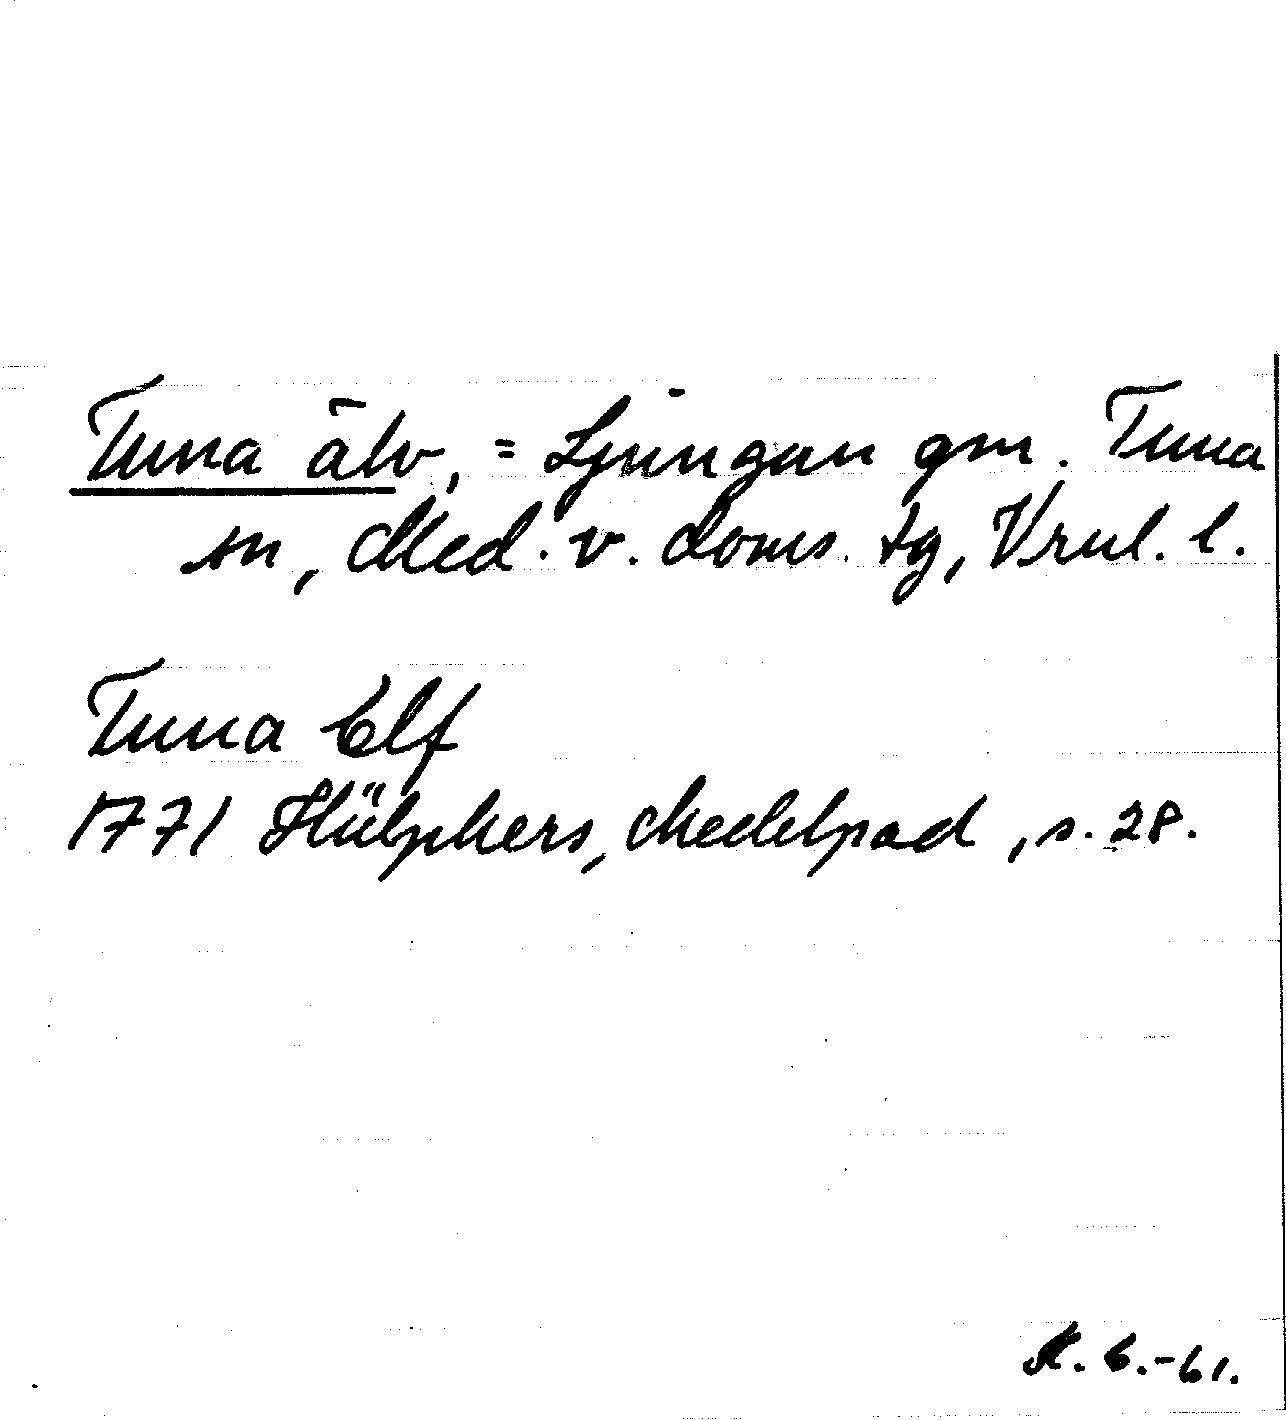 Tuna älv, = Ljungan gm. Tuna
sn, Med. v. doms. tg, Vrnl. l.
Tuna Elf
1771 Hülphers, Medelpad, s. 28.
6.-61.